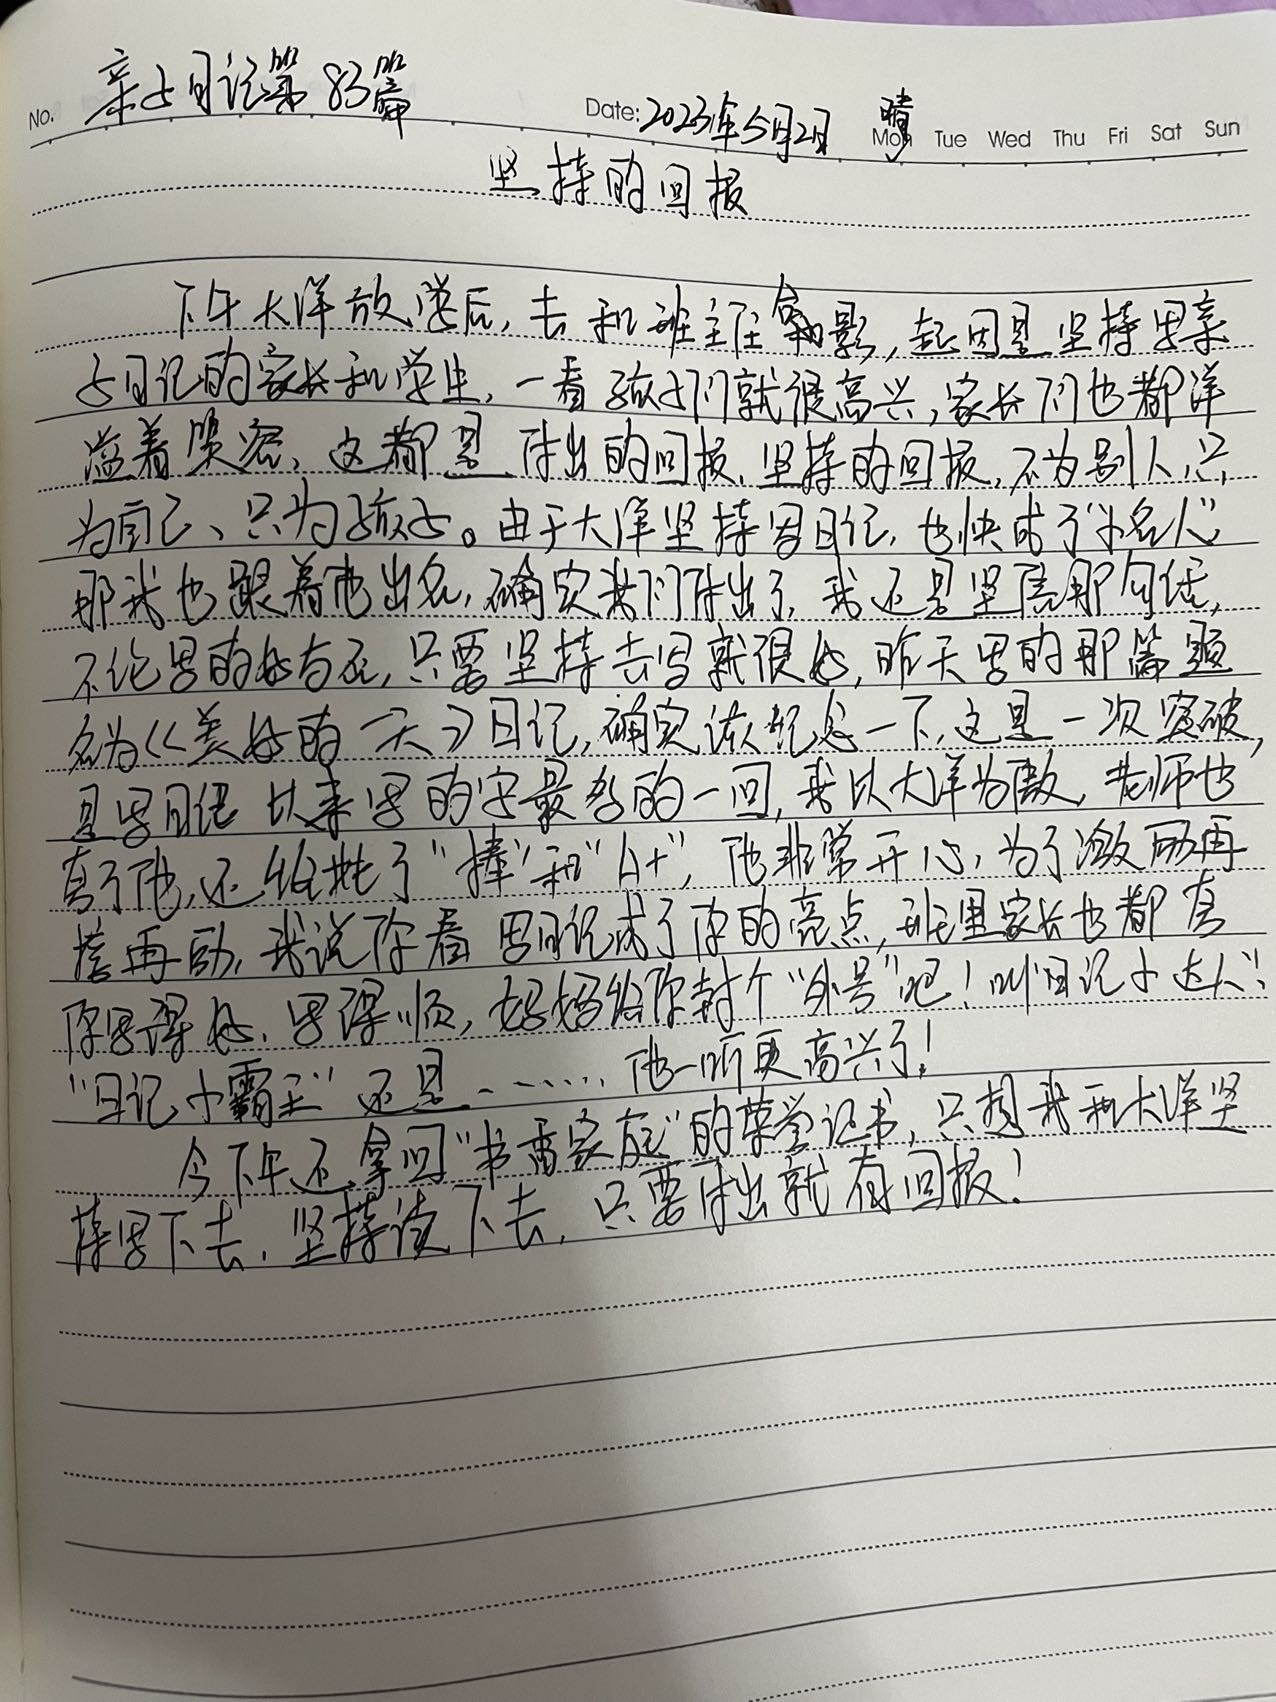 No. 亲子日记第83篇 Date: 2023年5月2日 晴 Mon Tue Wed Thu Fri Sat Sun
坚持的回报
下午大洋放学后,去和班主任合影,起因是坚持写亲
子日记的家长和学生,一看孩子们就很高兴,家长们也都洋
溢着笑容,这都是付出的回报,坚持的回报,不为别人,只
为自己、只为孩子。由于大洋坚持写日记,也快成了“小名人”,
那我也跟着他出名,确实我们付出了,我还是坚信那句话,
不论写的好与不,只要坚持去写就很好,昨天写的那篇题
名为《美好的一天》日记,确实该纪念一下,这是一次突破,
是写日记以来写的字最多的一回,我以大洋为傲,老师也
夸了他,还给批了“棒”和“A+”,他非常开心,为了激励再
接再励,我说你看写日记成了你的亮点,班里家长也都夸
你写得好,写得顺,妈妈给你封个“外号”吧!叫“日记小达人”,
“日记小霸王”还是……他一听更高兴了!
今下午还拿回“书香家庭”的荣誉证书,只想我和大洋坚
持写下去,坚持读下去,只要付出就有回报!